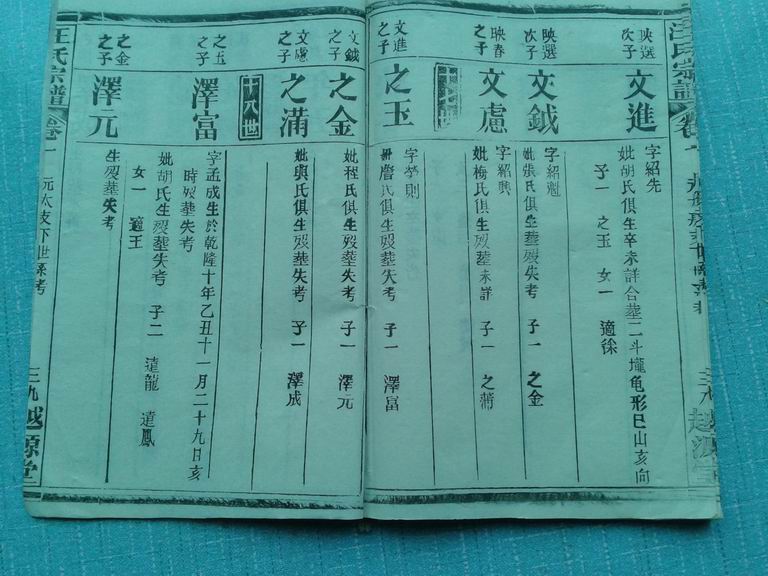 汪氏宗譜
卷
三八
越源堂
映選
次子
文進
字紹先
妣胡氏俱生辛未詳合墓二斗壠龟形巳山亥向
子一 之玉 女一 適徐
映選
次子
文鉞
字紹魁
妣張氏俱生殁墓失考 子一 之金
映春
之子
文慮
字紹興
妣梅氏俱生殁墓未詳 子一 之蒲
文進
之子
之玉
字學則
妣詹氏俱生殁墓失考 子一 澤富
文鉞
之子
之金
妣程氏俱生殁墓失考 子一 澤元
文慮
之子
之蒲
妣與氏俱生殁墓失考 子一 澤成
十八世
之玉
之子
澤富
字孟成生於乾隆十年乙丑十一月二十九日亥
時殁墓失考
妣胡氏生殁墓失考 子二 遠龍 遠鳳
女一 適王
之金
之子
澤元
生殁墓失考
汪氏宗譜
卷一
元太支下世系考
三九
越源堂